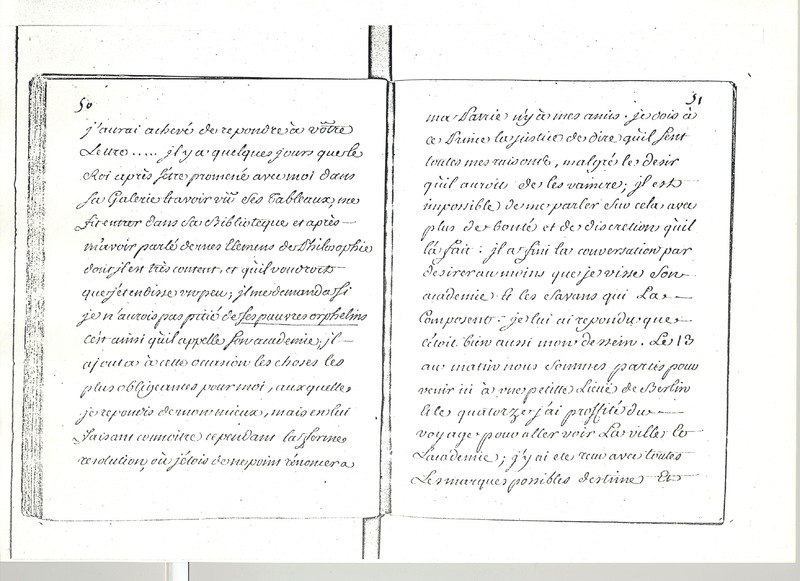 50
j'aurai achevé de repondre à vôtre
Lettre ..... jl y a quelques jours que le
Roi après s'être promené avec moi dans
sa Galerie et avoir vû ses Tableaux, me
fit entrer dans sa Biblioteque et après
m'avoir parlé de mes Elemens de Philosophie
dont jl est très content, et qu'il voudroit
que j'etendisse un peu; jl me demanda si
je n'aurois pas pitié de ses pauvres orphelins
c'est ainsi qu'il appelle son academie, jl
ajouta à cette occasion les choses les
plus obligeantes pour moi, auxquelles
je repondis de mon mieux, mais en lui
faisant connoitre cependant la ferme
resolution, où j'etois de ne point renoncer a
51
ma Patrie n'y à mes amis. je dois à
ce Prince la justice de dire qu'il sent
toutes mes raisons, malgré le desir
qu'il auroit de les vaincre; jl est
impossible de me parler sur cela avec
plus de bonté et de discretion qu'il
l'a fait: jl a fini la conversation par
desirer au moins que je visse son
academie et les savans qui La
Composent: je lui ai repondu que
c'etoit bien aussi mon dessein. Le 13
au matin nous sommes partis pour
venir ici à une petitte Lieuë de Berlin
et le quatorze j'ai proffité du
voyage pour aller voir La ville et
L'academie; j'y ai eté recu avec toutes
Les marques possibles d'estime Et